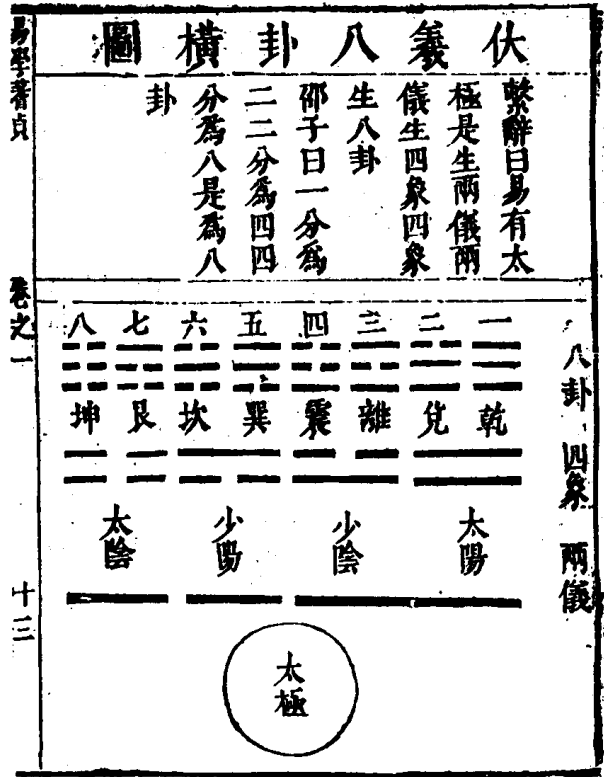 伏羲八卦橫圖
繫辭曰易有太
極是生兩儀兩
儀生四象四象
生八卦
邵子曰一分爲
二二分爲四四
分爲八是爲八
卦
一 二 三 四 五 六 七 八
乾 兌 離 震 巽 坎 艮 坤
太陽 少陰 少陽 太陰
太極
八卦 四象 兩儀
易學蓍貞
卷之一
十三